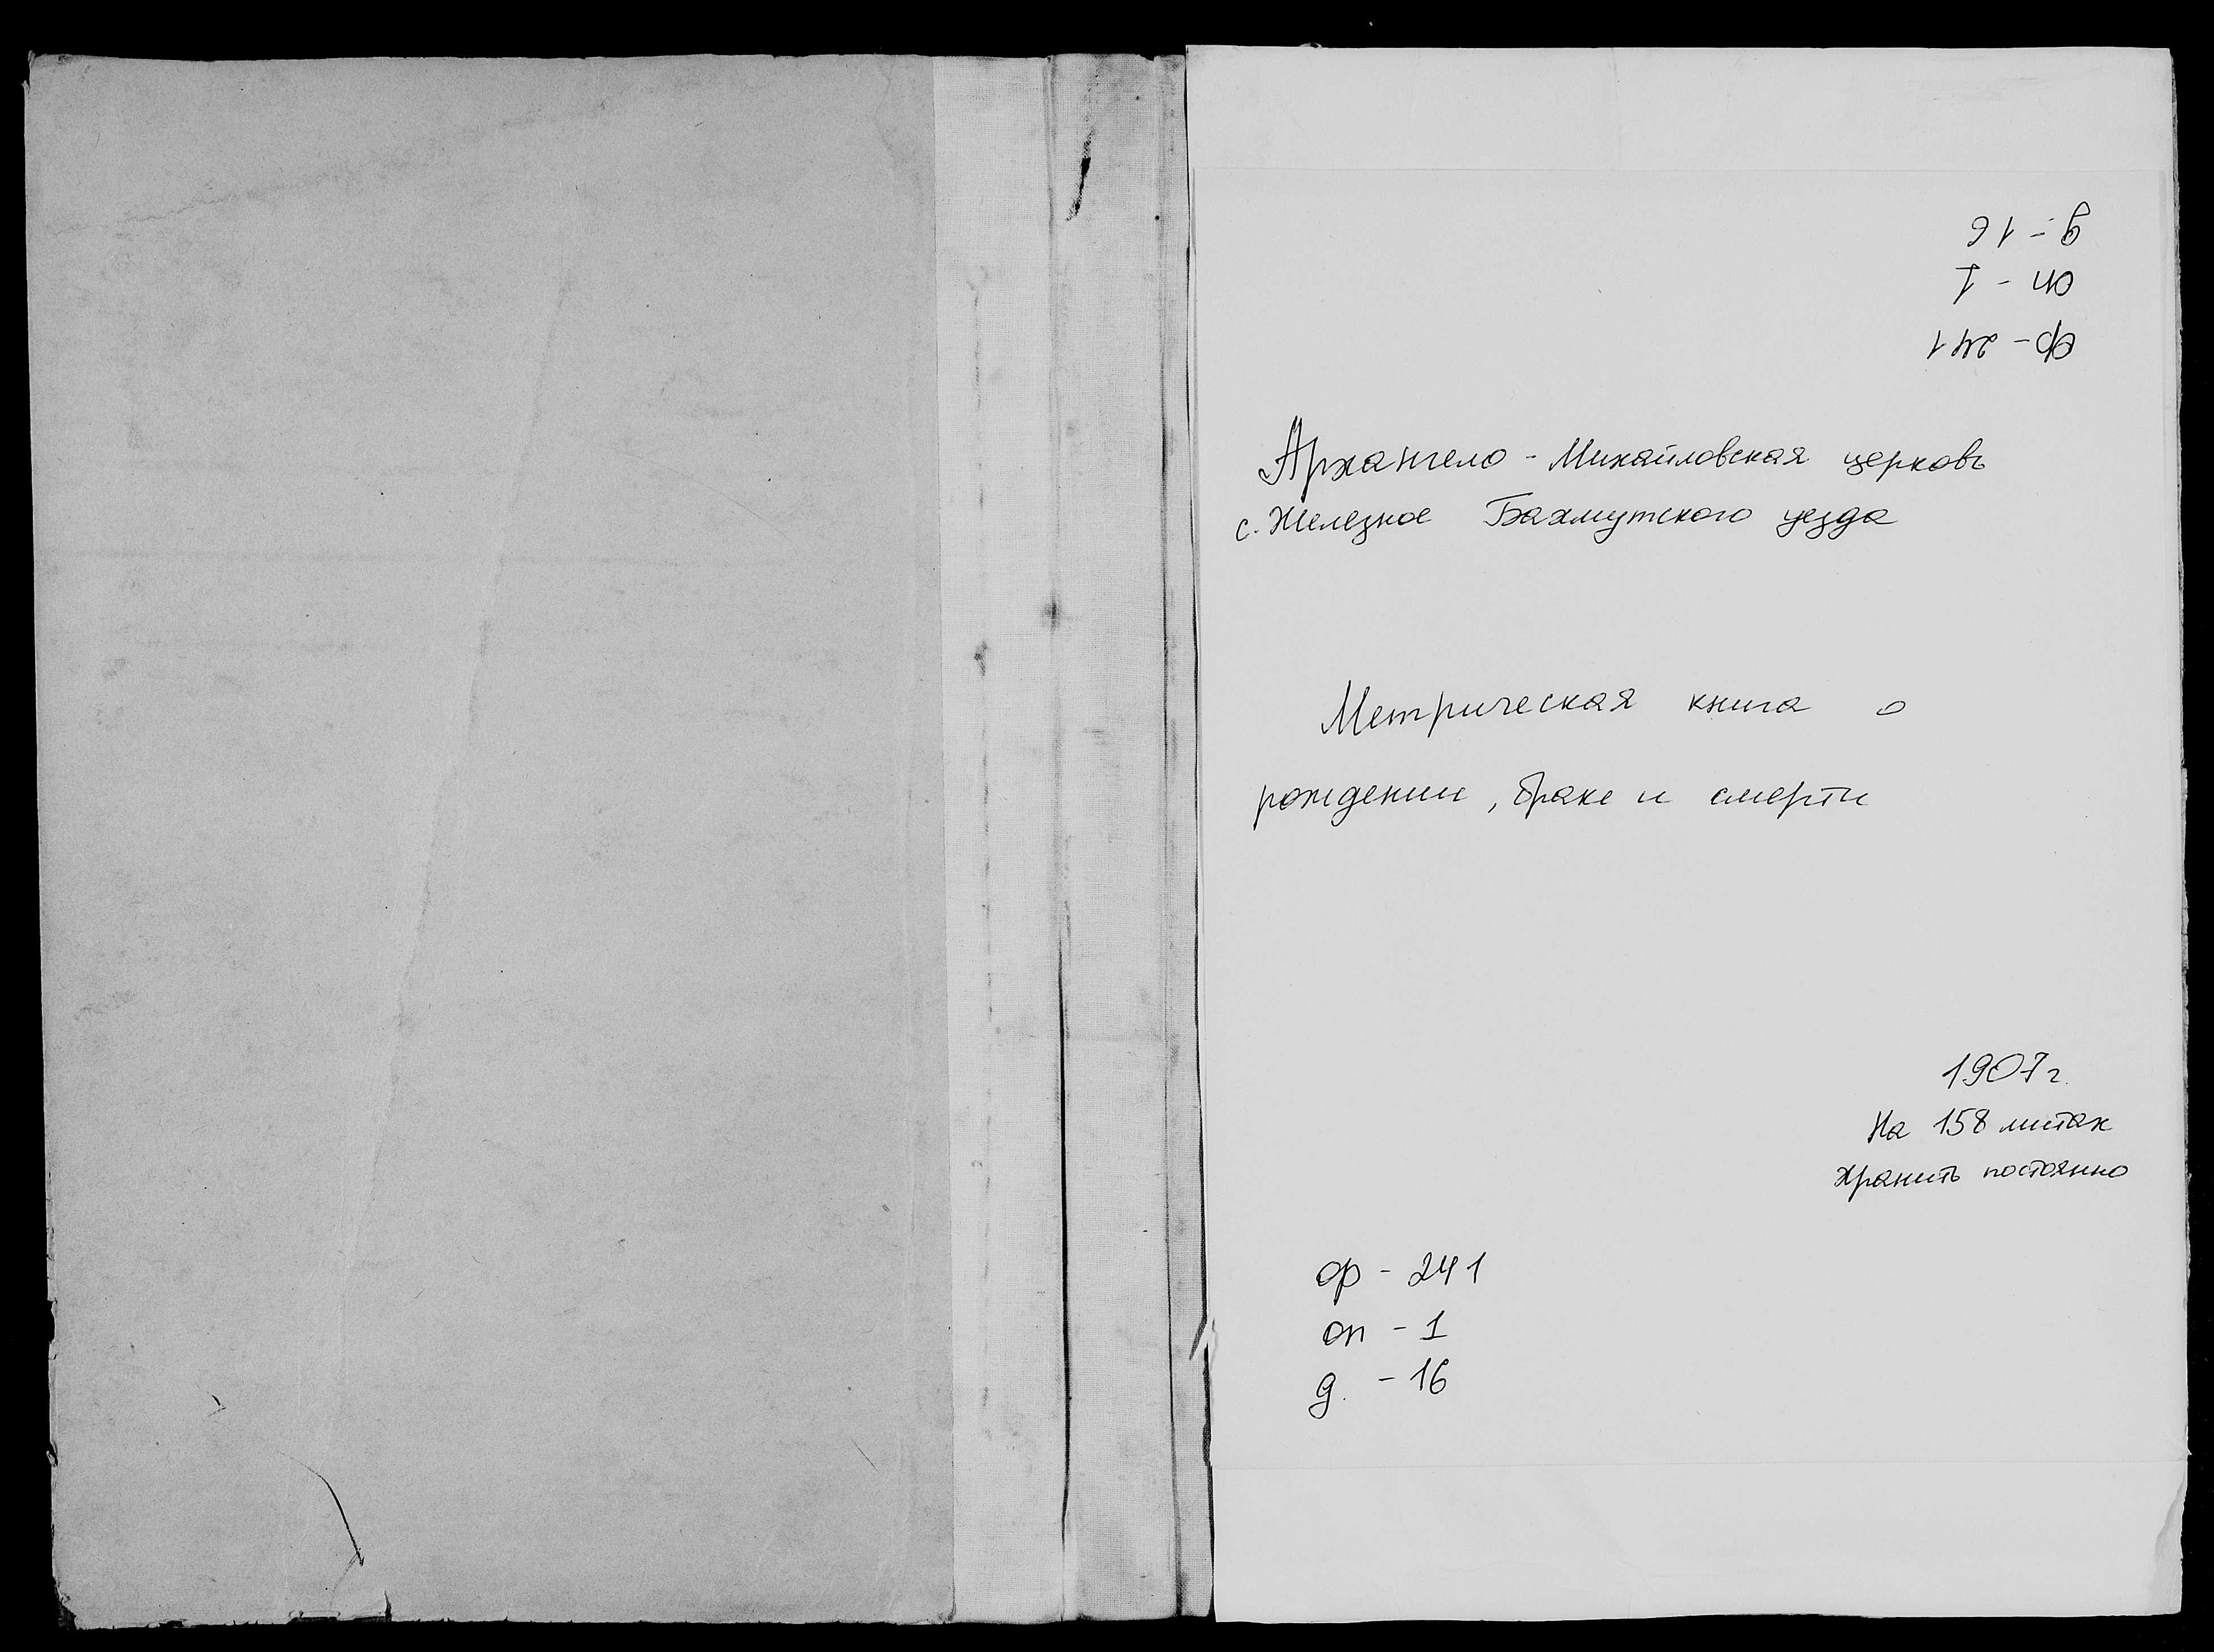 ф - 241
оп - 1
д - 16
Архангело - Михайловская церковь
с. Железное Бахмутского уезда
Метрическая книга о
рождении, браке и смерти
1907 г.
На 158 листах
Хранить постоянно
ф - 241
оп - 1
д. - 16